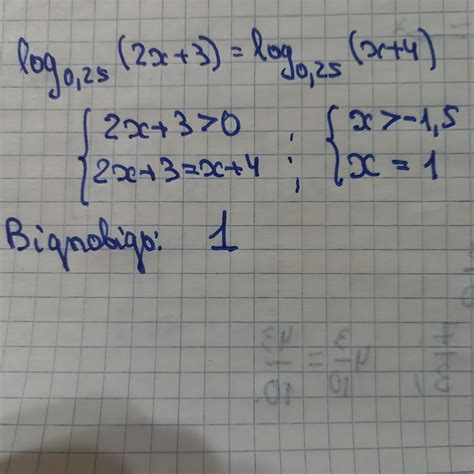 log₀,₂₅(2x+3) = log₀,₂₅(x+4)
{ 2x+3>0 ; { x>-1,5
{ 2x+3=x+4 { x = 1
Відповідь: 1